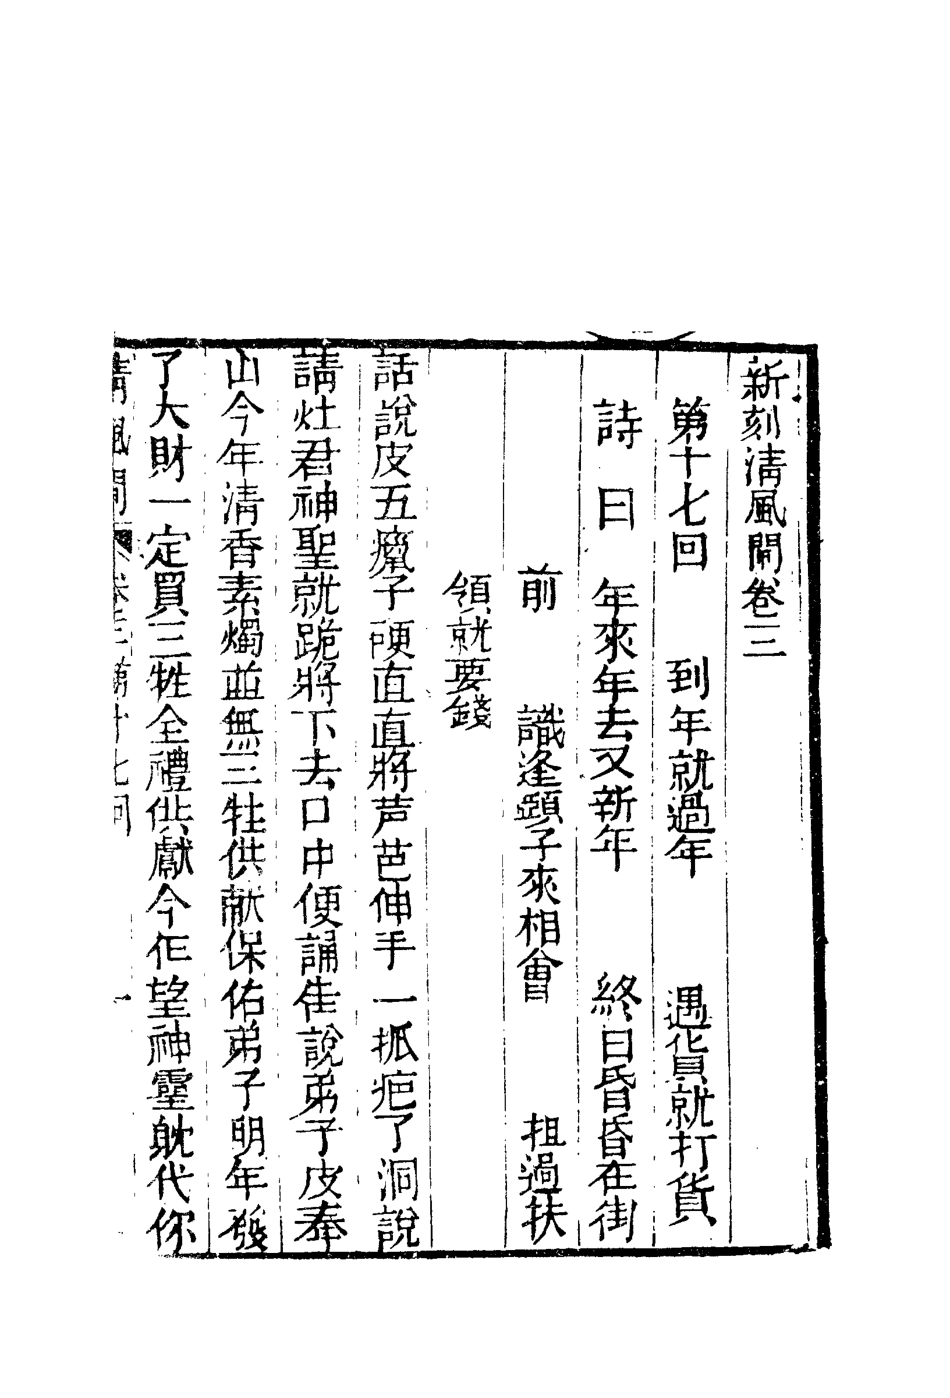 新刻清風閘卷三
第十七回　到年就過年　遇貨就打貨
詩曰　年來年去又新年　終日昏昏在街
前　識逢顕子來相會　扭過扶
領就要錢
話說皮五癩子硬直直將声芭伸手一抓疤了洞說
請灶君神聖就跪將下去口中便誦隹說弟子皮奉
山今年清香素燭並無三牲供献保佑弟子明年發
了大財一定買三牲全禮供獻今作望神靈躭代你
清風閘　卷三第十七回　一